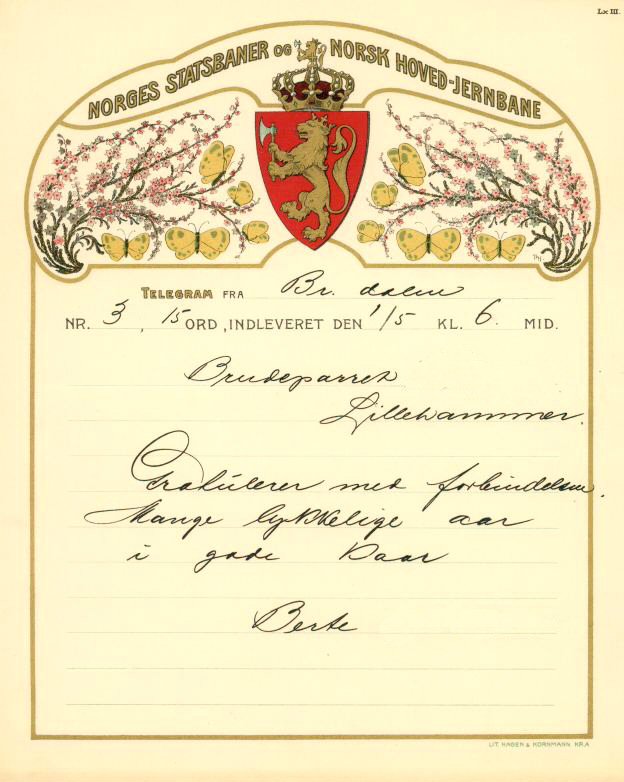 Lx III.
NORGES STATSBANER OG NORSK HOVED-JERNBANE
TELEGRAM FRA Br. dalen
NR. 3, 15 ORD, INDLEVERET DEN 1/5 KL. 6. MID.
Brudeparret
Lillehammer.
Gratulerer med forbindelsen.
Mange lykkelige aar
i gode kaar
Berte
LIT. HAGEN & KORNMANN KR.A